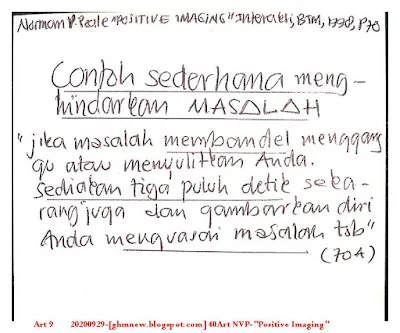 Norman V. Peale "POSITIVE IMAGING" Interaksi, BTM, 1998, P70
Contoh sederhana meng-
hindarkan MASALAH
"jika masalah membandel menggang
gu atau menyulitkan Anda.
Sediakan tiga puluh detik seka-
rang juga dan gambarkan diri
Anda menguasai masalah tsb"
(70A)
Art 9 20200929-[ghmnew.blogspot.com] 40Art NVP-"Positive Imaging"